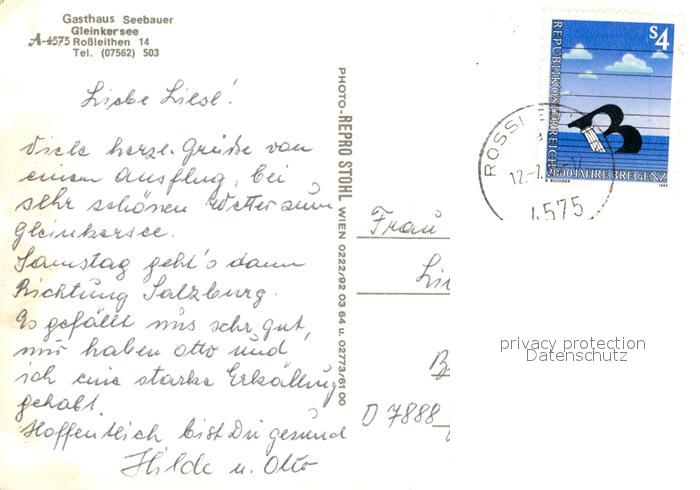 Gasthaus Seebauer
Gleinkersee
A-4575 Roßleithen 14
Tel. (07562) 503
Liebe Liesl!
Viele herzl. Grüße von
einem Ausflug, bei
sehr schönen Wetter zum
Gleinkersee.
Samstag geht's dann
Richtung Salzburg.
Es gefällt uns sehr gut,
nur haben Otto und
ich eine starke Erkältung
gehabt.
Hoffentlich bist Du gesund
Hilde u. Otto
PHOTO-REPRO STOHL WIEN 0222/92 03 64 u. 02773/61 00
S4
REPUBLIK ÖSTERREICH
2000 JAHRE BREGENZ
E. BUCHNER
1985
ROSSLE
12.-7.
4575
Frau
D 7888
privacy protection
Datenschutz